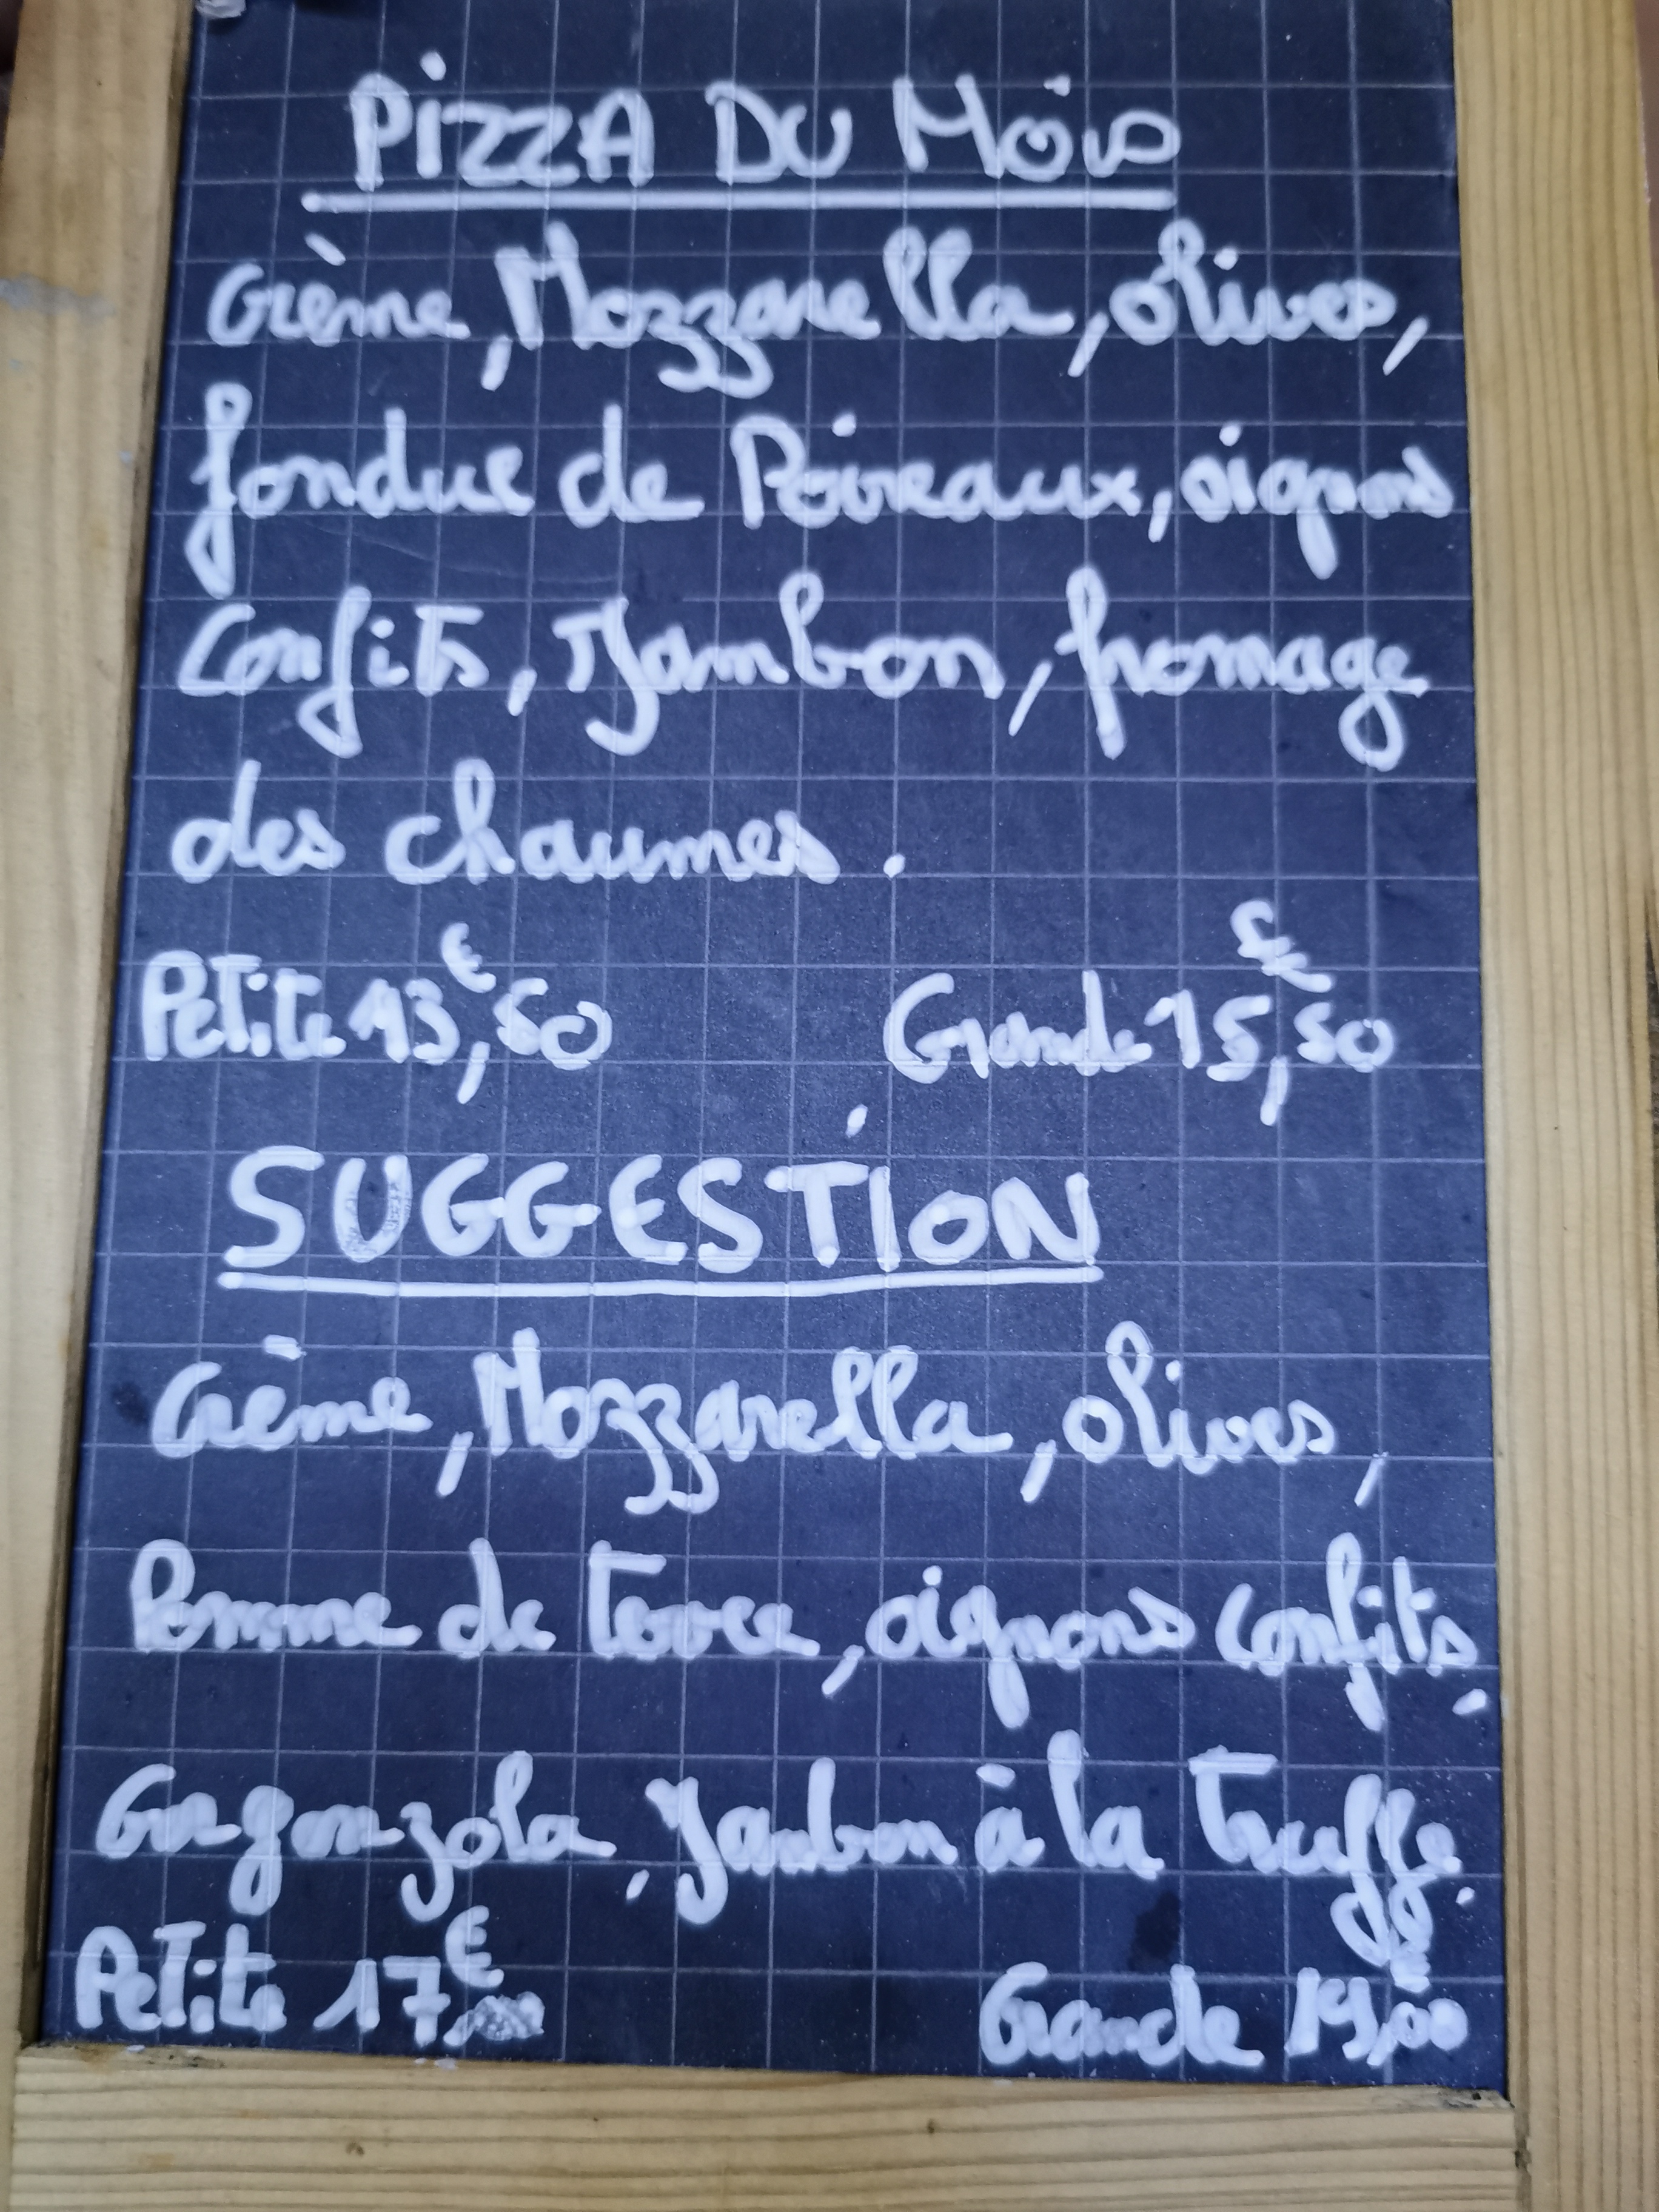 PIZZA DU MOIS
Crème, Mozzarella, olives,
fondue de Poireaux, oignons
Confits, Jambon, fromage
des chaumes.
Petite 13€,50 Grande 15€,50
SUGGESTION
Crème, Mozzarella, olives,
Pomme de terre, oignons confits,
Gorgonzola, Jambon à la truffe.
Petite 17€ Grande 19€,00